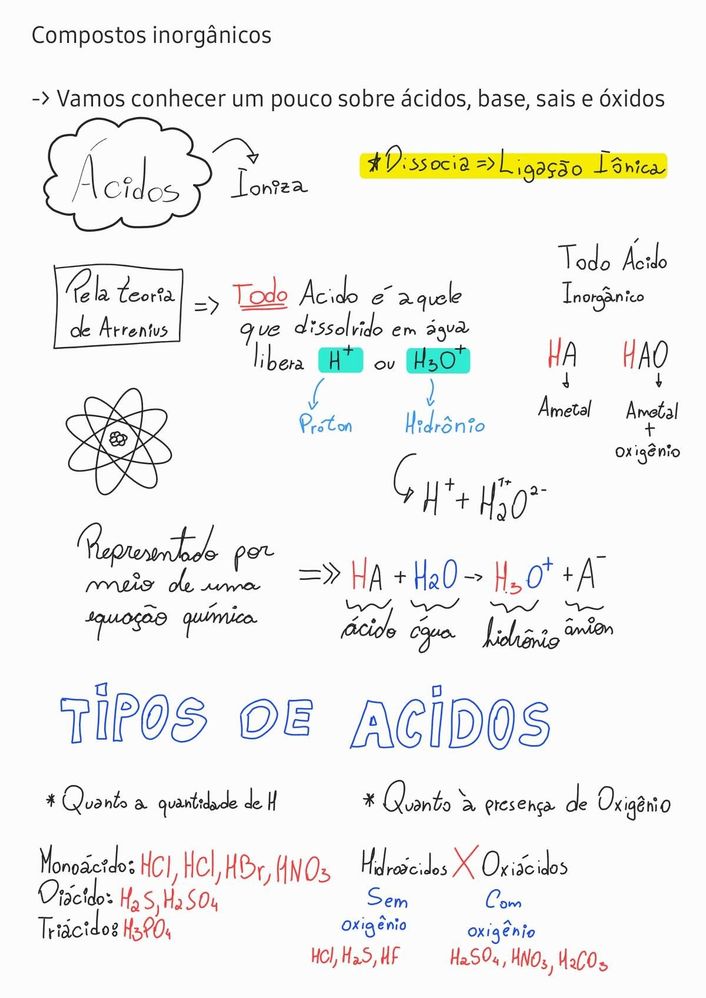 Compostos inorgânicos
-> Vamos conhecer um pouco sobre ácidos, base, sais e óxidos
Ácidos
Ioniza
*Dissocia => Ligação Iônica
Pela teoria
de Arrenius
=> Todo Acido é aquele
que dissolvido em água
libera H⁺ ou H₃O⁺
Próton
Hidrônio
Todo Ácido
Inorgânico
HA
HAO
Ametal
Ametal
+
oxigênio
H⁺ + H₂¹⁺O²⁻
Representado por
meio de uma
equação química
=>> HA + H₂O -> H₃O⁺ + A⁻
ácido água hidrônio ânion
TIPOS DE ACIDOS
* Quanto a quantidade de H
Monoácido: HCl, HCl, HBr, HNO₃
Diácido: H₂S, H₂SO₄
Triácido: H₃PO₄
* Quanto à presença de Oxigênio
Hidroácidos X Oxiácidos
Sem
oxigênio
Com
oxigênio
HCl, H₂S, HF
H₂SO₄, HNO₃, H₂CO₃